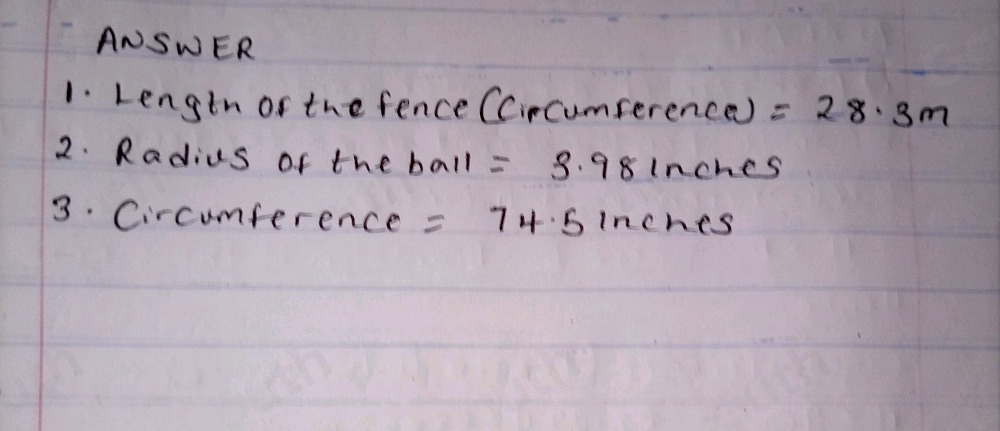 ANSWER
1. Length of the fence (Circumference) = 28.3m
2. Radius of the ball = 3.98 Inches
3. Circumference = 74.5 Inches